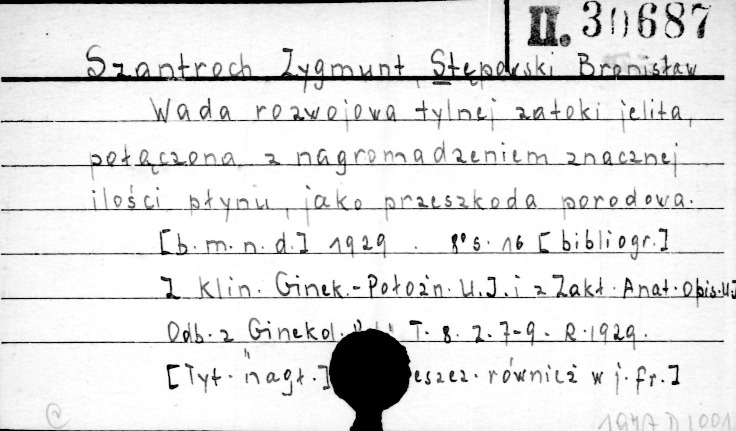 II. 30687
Szantroch Zygmunt, Stępowski Bronisław
Wada rozwojowa tylnej zatoki jelita,
połączona z nagromadzeniem znacznej
ilości płynu, jako przeszkoda porodowa.
[b. m. n. d.] 1929. 8° s. 16 [bibliogr.]
Z Klin. Ginek.-Położn. U.J. i z Zakł. Anat. Opis. UJ
Odb. z Ginekol. T. 8. Z. 7-9. R. 1929.
[Tyt. nagł.] również w j. fr.]